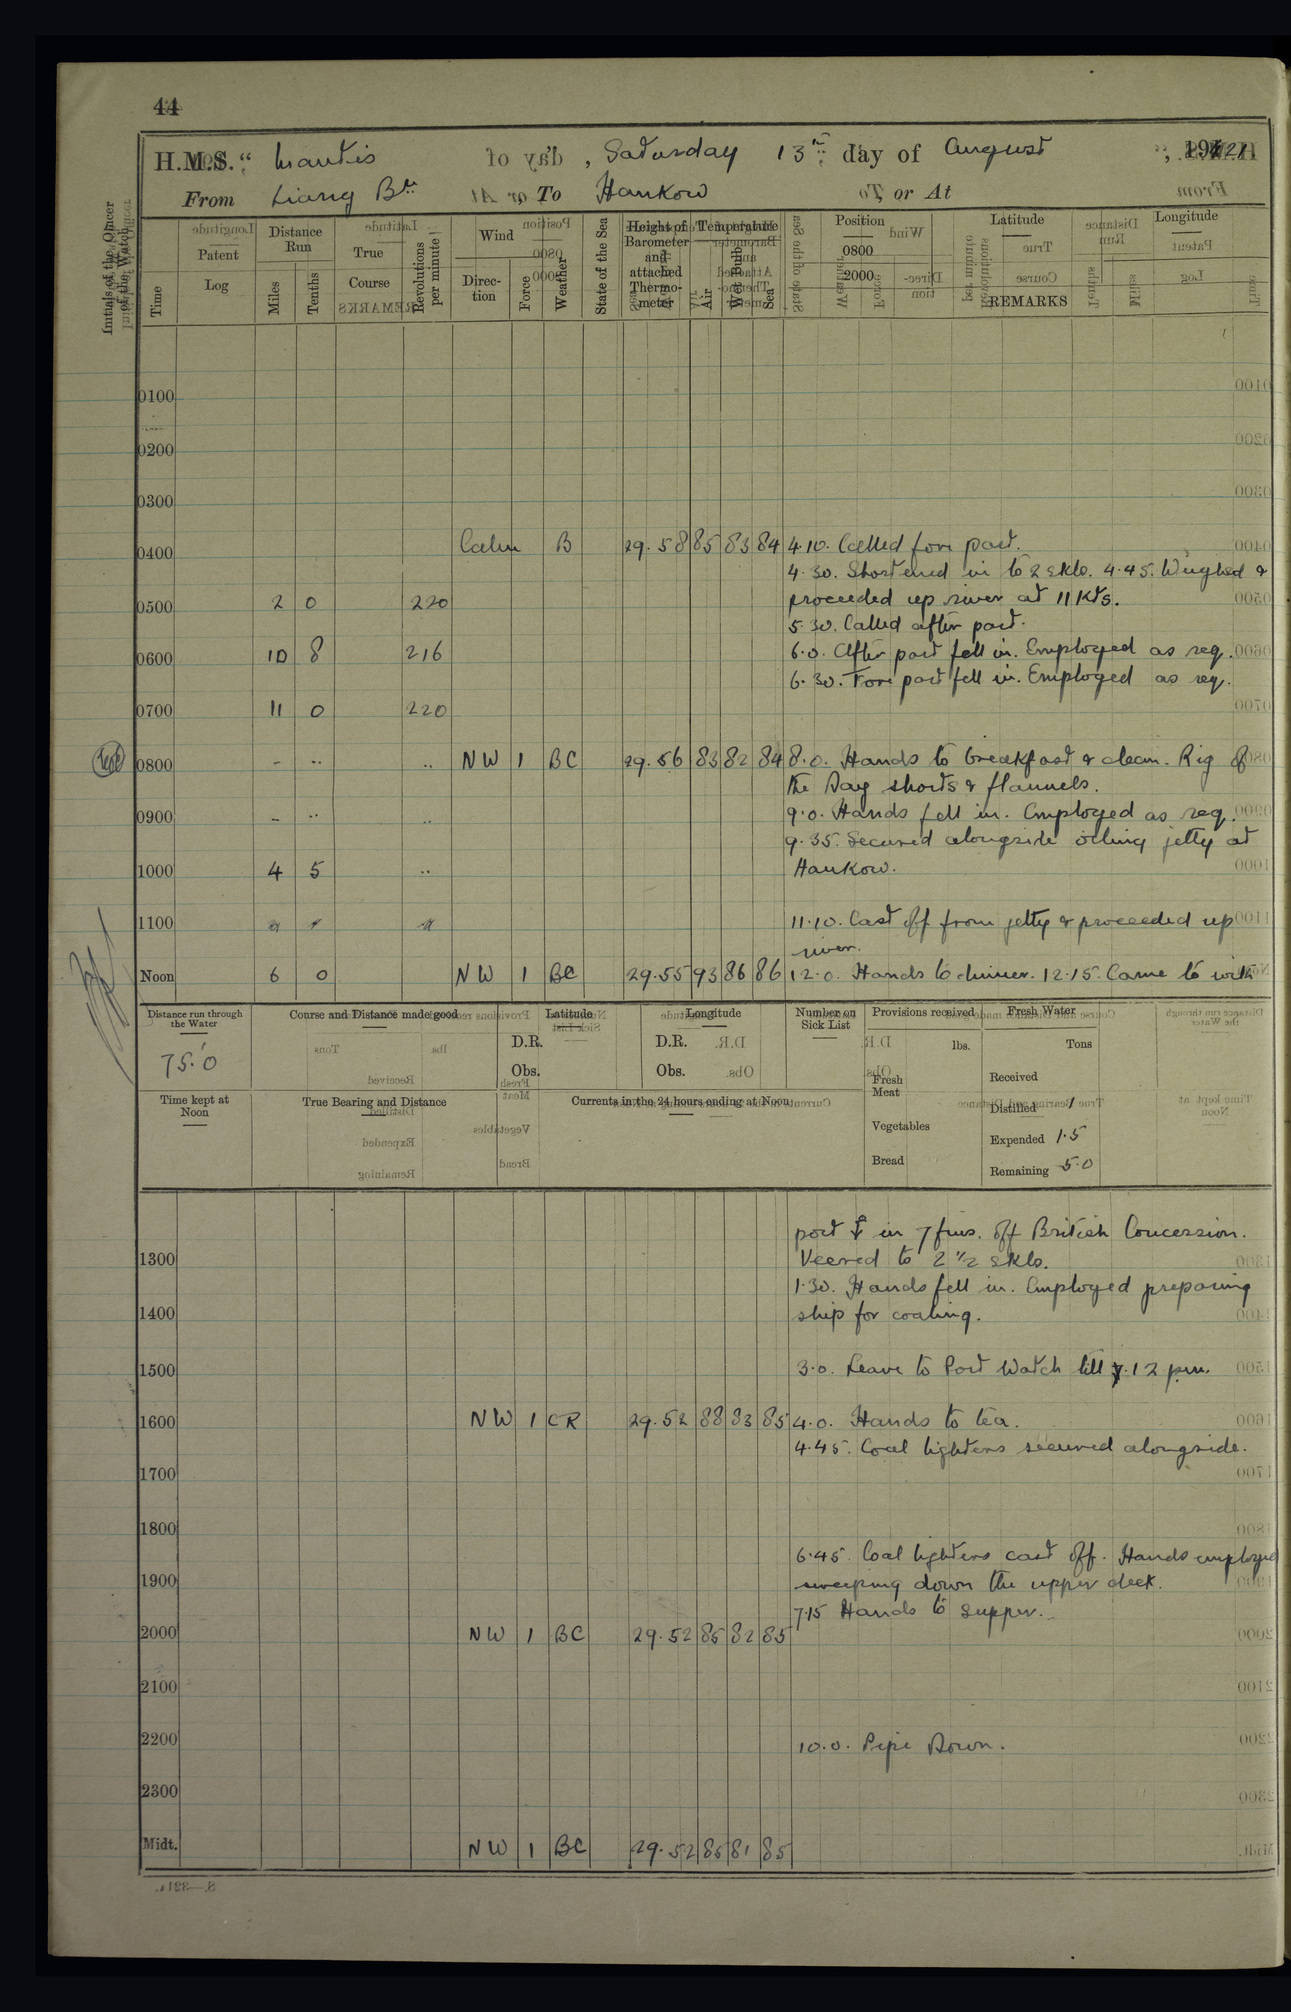 44
H.M.S. “ Mantis , Saturday 13th day of August , 1921
From Liang Bn. To Hankow , or At
Initials of the Officer of the Watch
Time
Patent Log
Distance Run
Miles Tenths
True Course
Revolutions per minute
Wind
Direction Force
Weather
State of the Sea
Height of Barometer and attached Thermometer
Temperature
Air Wet Bulb Sea
Position Latitude Longitude
0800
2000
REMARKS
0100
0200
0300
0400 Calm B 29.58 85 83 84 4.10. Called fore part.
4.30. Shortened in to 2 skls. 4.45. Weighed &
0500 2 0 220 proceeded up river at 11 Kts.
5.30. Called after part.
0600 10 8 216 6.0. After part fell in. Employed as req.
6.30. Fore part fell in. Employed as req.
0700 11 0 220
0800 - .. .. NW 1 BC 29.56 83 82 84 8.0. Hands to breakfast & clean. Rig of
the Day shorts & flannels.
0900 - .. .. 9.0. Hands fell in. Employed as req.
9.35. Secured alongside oiling jetty at
1000 4 5 .. Hankow.
1100 11.10. Cast off from jetty & proceeded up
river.
Noon 6 0 NW 1 BC 29.55 93 86 86 12.0. Hands to dinner. 12.15. Came to with
Distance run through the Water
75.0
Course and Distance made good
Latitude
D.R.
Obs.
Longitude
D.R.
Obs.
Number on Sick List
Provisions received
lbs.
Fresh Meat
Vegetables
Bread
Fresh Water
Tons
Received
Distilled 1
Expended 1.5
Remaining 5.0
Time kept at Noon
True Bearing and Distance
Currents in the 24 hours ending at Noon
port ⚓ in 7 fms. off British Concession.
1300 Veered to 2 ½ skls.
1.30. Hands fell in. Employed preparing
1400 ship for coaling.
1500 3.0. Leave to Port Watch till 12 pm.
1600 NW 1 CR 29.52 88 83 85 4.0. Hands to tea.
4.45. Coal lighters secured alongside.
1700
1800
6.45. Coal lighters cast off. Hands employed
1900 sweeping down the upper deck.
7.15 Hands to supper.
2000 NW 1 BC 29.52 85 82 85
2100
2200 10.0. Pipe Down.
2300
Midt. NW 1 BC 29.52 85 81 85